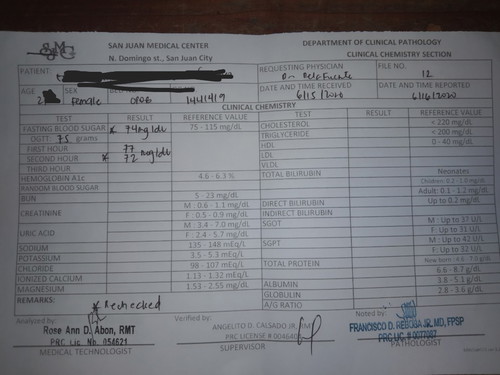 SAN JUAN MEDICAL CENTER
N. Domingo st., San Juan City
DEPARTMENT OF CLINICAL PATHOLOGY
CLINICAL CHEMISTRY SECTION
PATIENT
REQUESTING PHYSICIAN
Dr. Dela Fuente
FILE NO.
12
AGE
SEX
Female
OPDB
1441419
DATE AND TIME RECEIVED
6/15/2020
DATE AND TIME REPORTED
6/16/2020
CLINICAL CHEMISTRY
TEST RESULT REFERENCE VALUE TEST RESULT REFERENCE VALUE
FASTING BLOOD SUGAR * 74mg/dL 75 - 115 mg/dL CHOLESTEROL < 220 mg/dL
OGTT: 75 grams TRIGLYCERIDE < 200 mg/dL
FIRST HOUR 77 HDL 0 - 40 mg/dL
SECOND HOUR * 72 mg/dL LDL
THIRD HOUR VLDL
HEMOGLOBIN A1c 4.6 - 6.3 % TOTAL BILIRUBIN Neonates
RANDOM BLOOD SUGAR Adult: 0.1 - 1.2 mg/dL
BUN 5 - 23 mg/dL DIRECT BILIRUBIN Up to 0.2 mg/dL
CREATININE M : 0.6 - 1.1 mg/dL INDIRECT BILIRUBIN
F : 0.5 - 0.9 mg/dL SGOT M : Up to 37 U/L
URIC ACID M : 3.4 - 7.0 mg/dL F : Up to 31 U/L
F : 2.4 - 5.7 mg/dL SGPT M : Up to 42 U/L
SODIUM 135 - 148 mEq/L F : Up to 32 U/L
POTASSIUM 3.5 - 5.3 mEq/L TOTAL PROTEIN
CHLORIDE 98 - 107 mEq/L 6.6 - 8.7 g/dL
IONIZED CALCIUM 1.13 - 1.32 mEq/L ALBUMIN 3.8 - 5.1 g/dL
MAGNESIUM 1.53 - 2.55 mg/dL GLOBULIN 2.8 - 3.6 g/dL
A/G RATIO
REMARKS:
* Rechecked
Analyzed by:
Rose Ann D. Abon, RMT
PRC Lic No. 054621
MEDICAL TECHNOLOGIST
Verified by:
ANGELITO D. CALSADO JR, RMT
PRC LICENSE #
SUPERVISOR
Noted by:
FRANCISCO D. REBOSA JR, MD, FPSP
PRC LIC. # 0077987
PATHOLOGIST